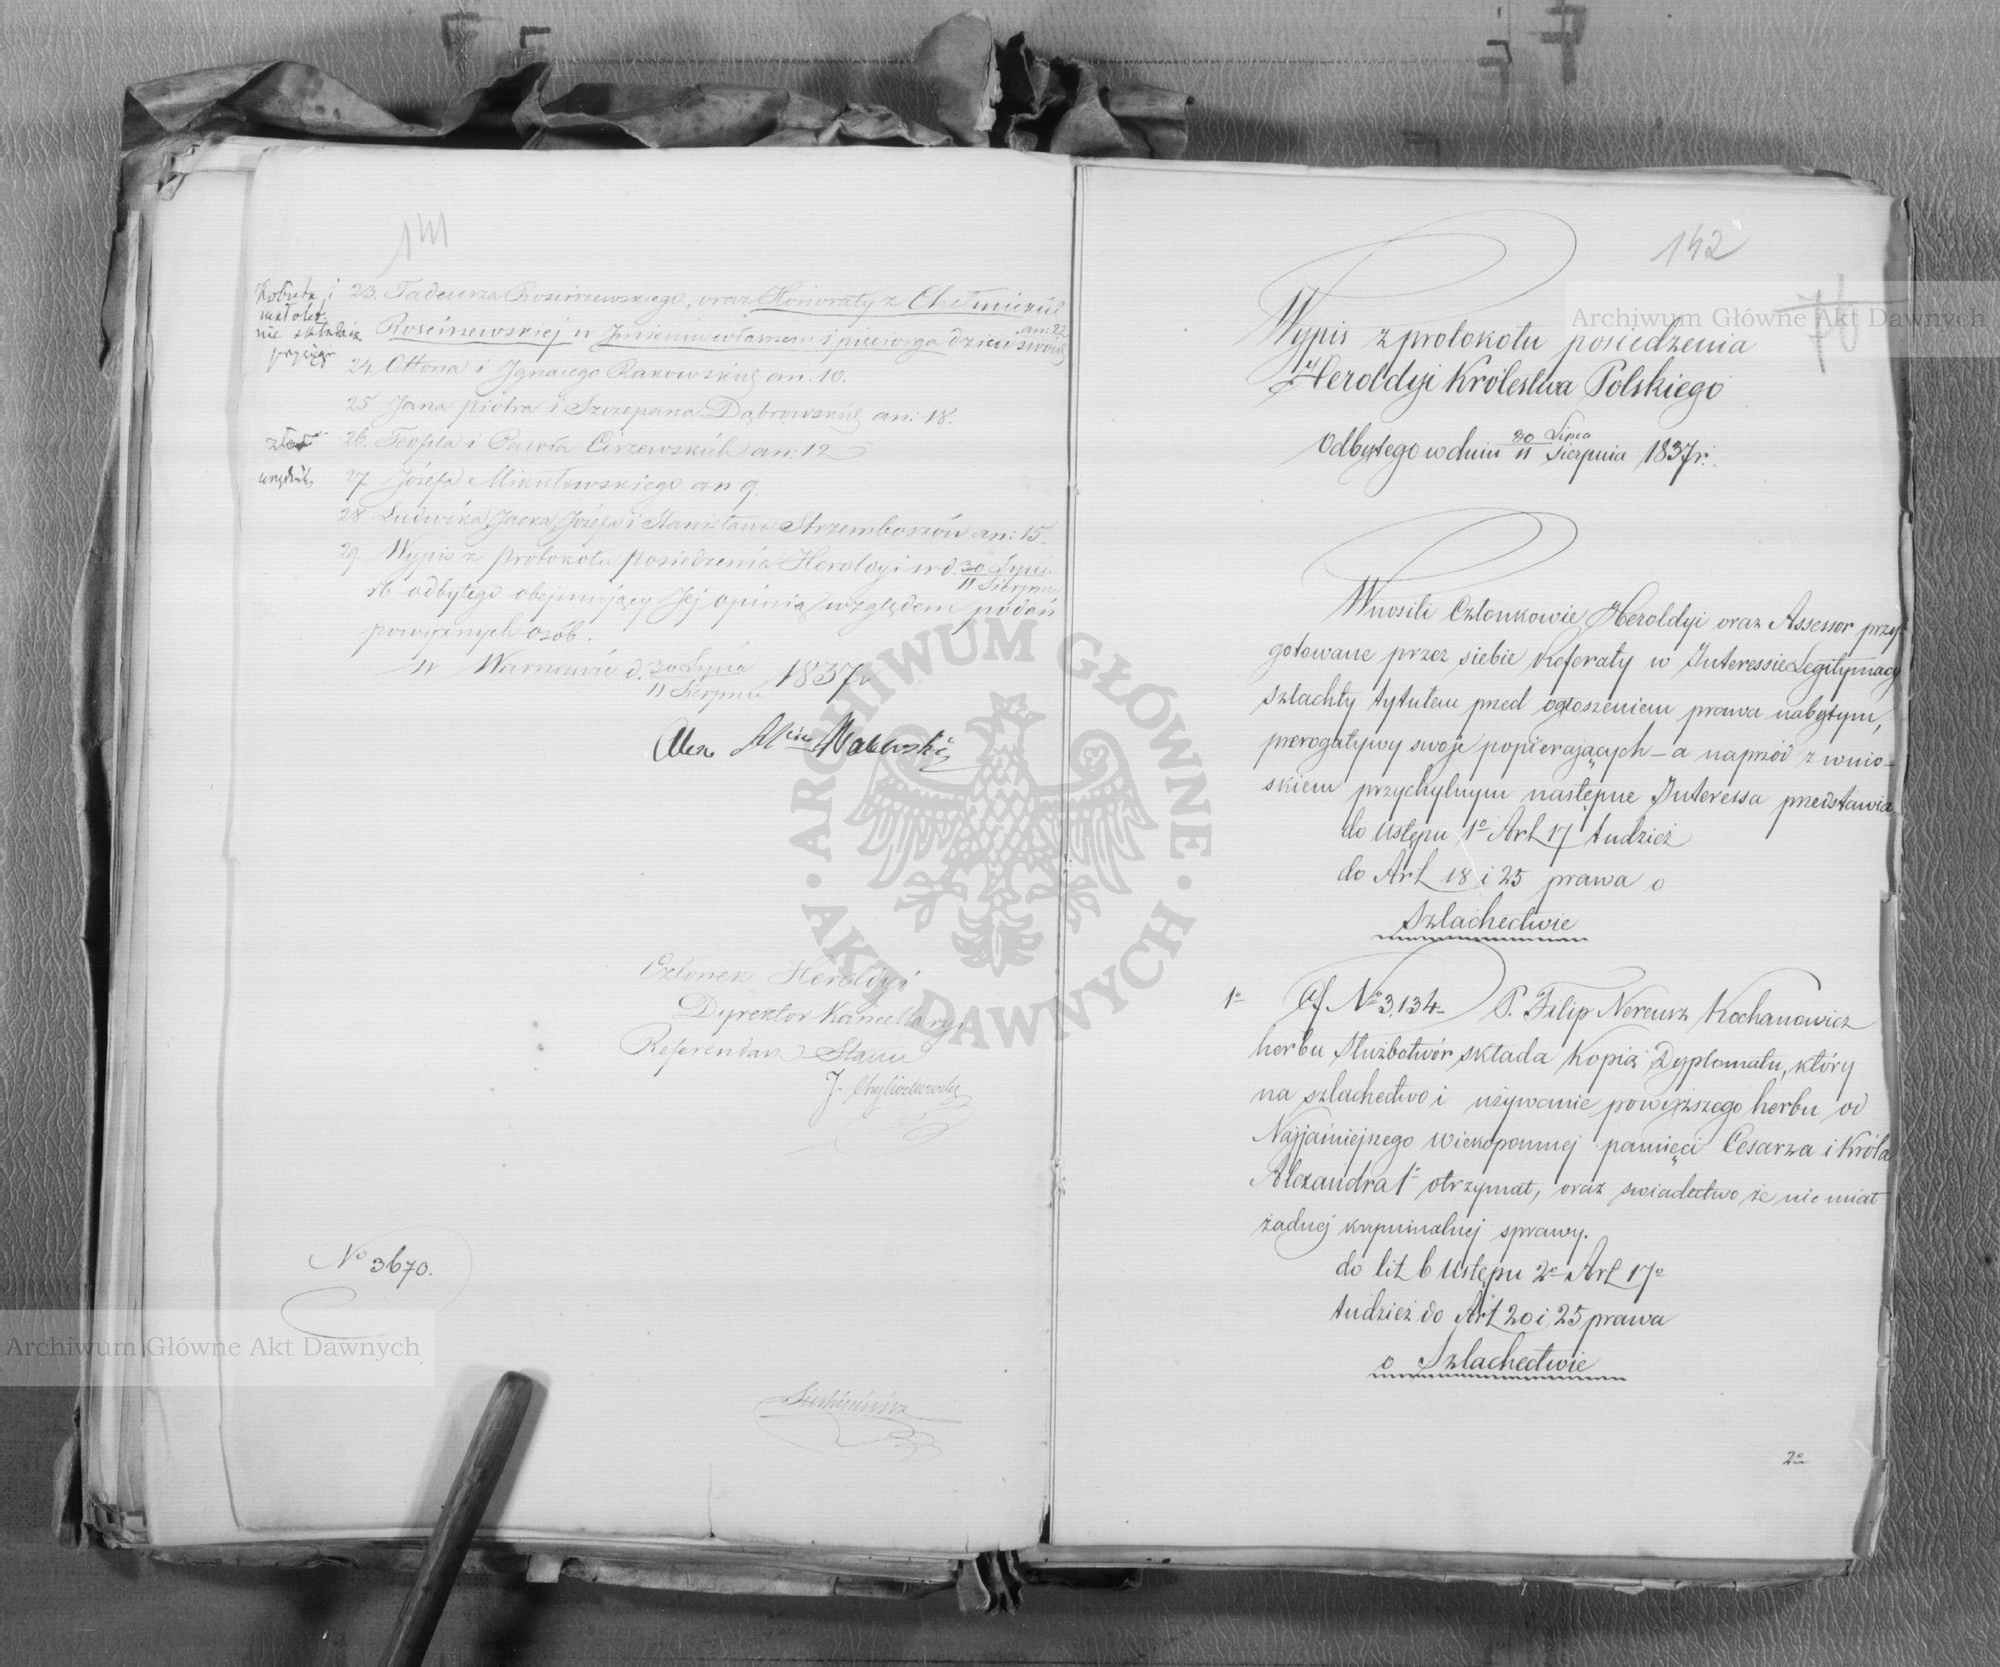 141
Kobieta i
małolet.
nie składają
przysięgi
23. Tadeusza Rościszewskiego, oraz Honoraty z Chełmickich
an: 22
Rościszewskiej w Imieniu własnem i piewiorga dzieci swoich
24 Ottona i Ignacego Rakowskich an. 10.
25 Jana piotra i Szczepana Dąbrowskich an: 18.
26. Teofila i Pawła Cirzewskich an: 12
27 Józefa Mikułowskiego an 9.
28 Ludwika, Jacka, Józefa i Stanisława Strzemboszów an: 15.
29. Wypis z protokołu posiedzenia Heroldyi w d. 30 Lipca
11 Sierpnia
rb odbytego obejmujący Jej opinią względem podań
powyższych osób.
w Warszawie d. 30 Lipca 1837 r
11 Sierpnia
Członek Heroldyi
Dyrektor Kancellaryi
Referendarz Stanu
No 3670.
142
Wypis z protokołu posiedzenia
Heroldyi Królestwa Polskiego
odbytego w dniu 30 Lipca
11 Sierpnia 1837 r.
Wnosili Członkowie Heroldyi oraz Assessor przy-
gotowane przez siebie Referaty w Interessie Legitymacyi
szlachty tytułem przed ogłoszeniem prawa nabytym,
prerogatywy swoje popierających – a naprzód z wnio-
skiem przychylnym następne Interessa przedstawia
do Ustępu 1o Art 17 tudzież
do Art 18 i 25 prawa o
Szlachectwie
1o Af No 3,134 P. Filip Nereusz Kochanowicz
herbu Służbotwór składa kopią Dyplomatu, który
na szlachectwo i używanie powyższego herbu od
Najjaśniejszego wiekopomnej pamięci Cesarza i Króla
Alexandra 1o otrzymał, oraz swiadectwo że nie miał
żadnej kryminalnej sprawy.
do lit b Ustępu 2o Art 17o
tudzież do Art 20 i 25 prawa
o Szlachectwie
2o
Archiwum Główne Akt Dawnych
Archiwum Główne Akt Dawnych
ARCHIWUM GŁÓWNE AKT DAWNYCH